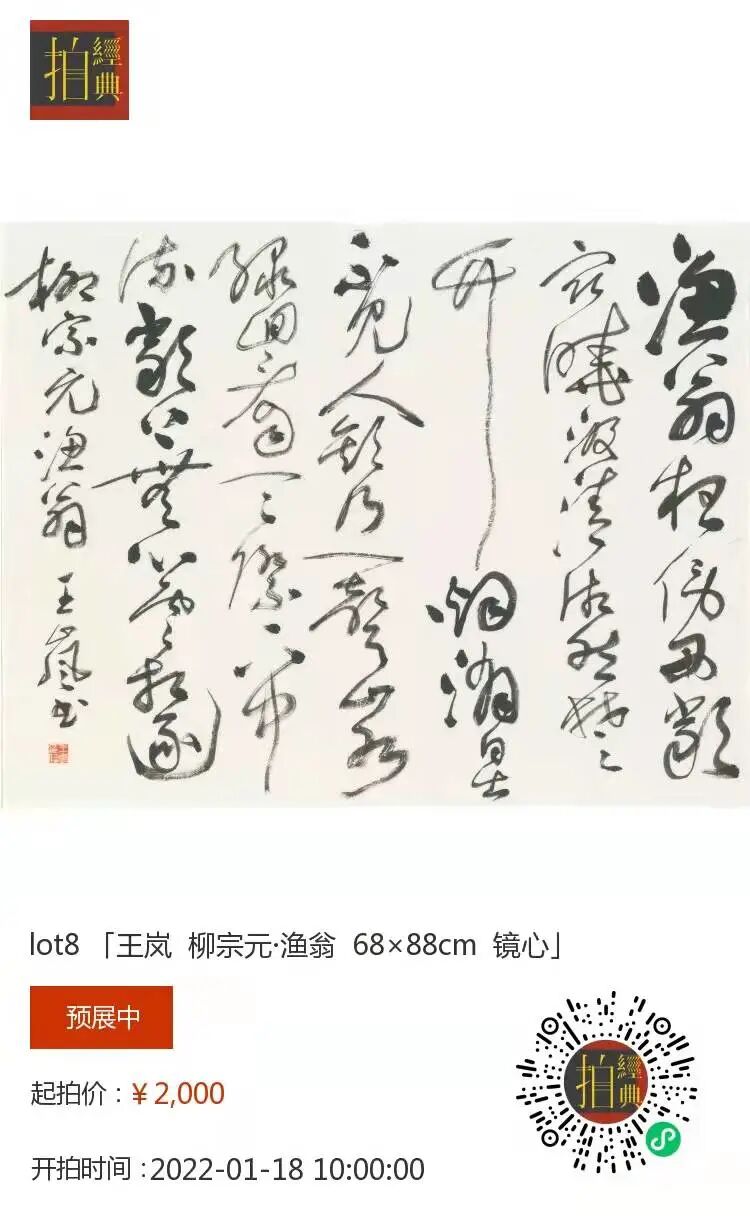 經典拍
漁翁夜傍西巖
宿曉汲清湘然楚
竹烟消日出
不見人欸乃一聲山水
綠回看天際下中
流巖上無心雲相逐
柳宗元漁翁 王嵐書
lot8 「王岚 柳宗元·渔翁 68×88cm 镜心」
预展中
起拍价：¥2,000
开拍时间：2022-01-18 10:00:00
經典拍